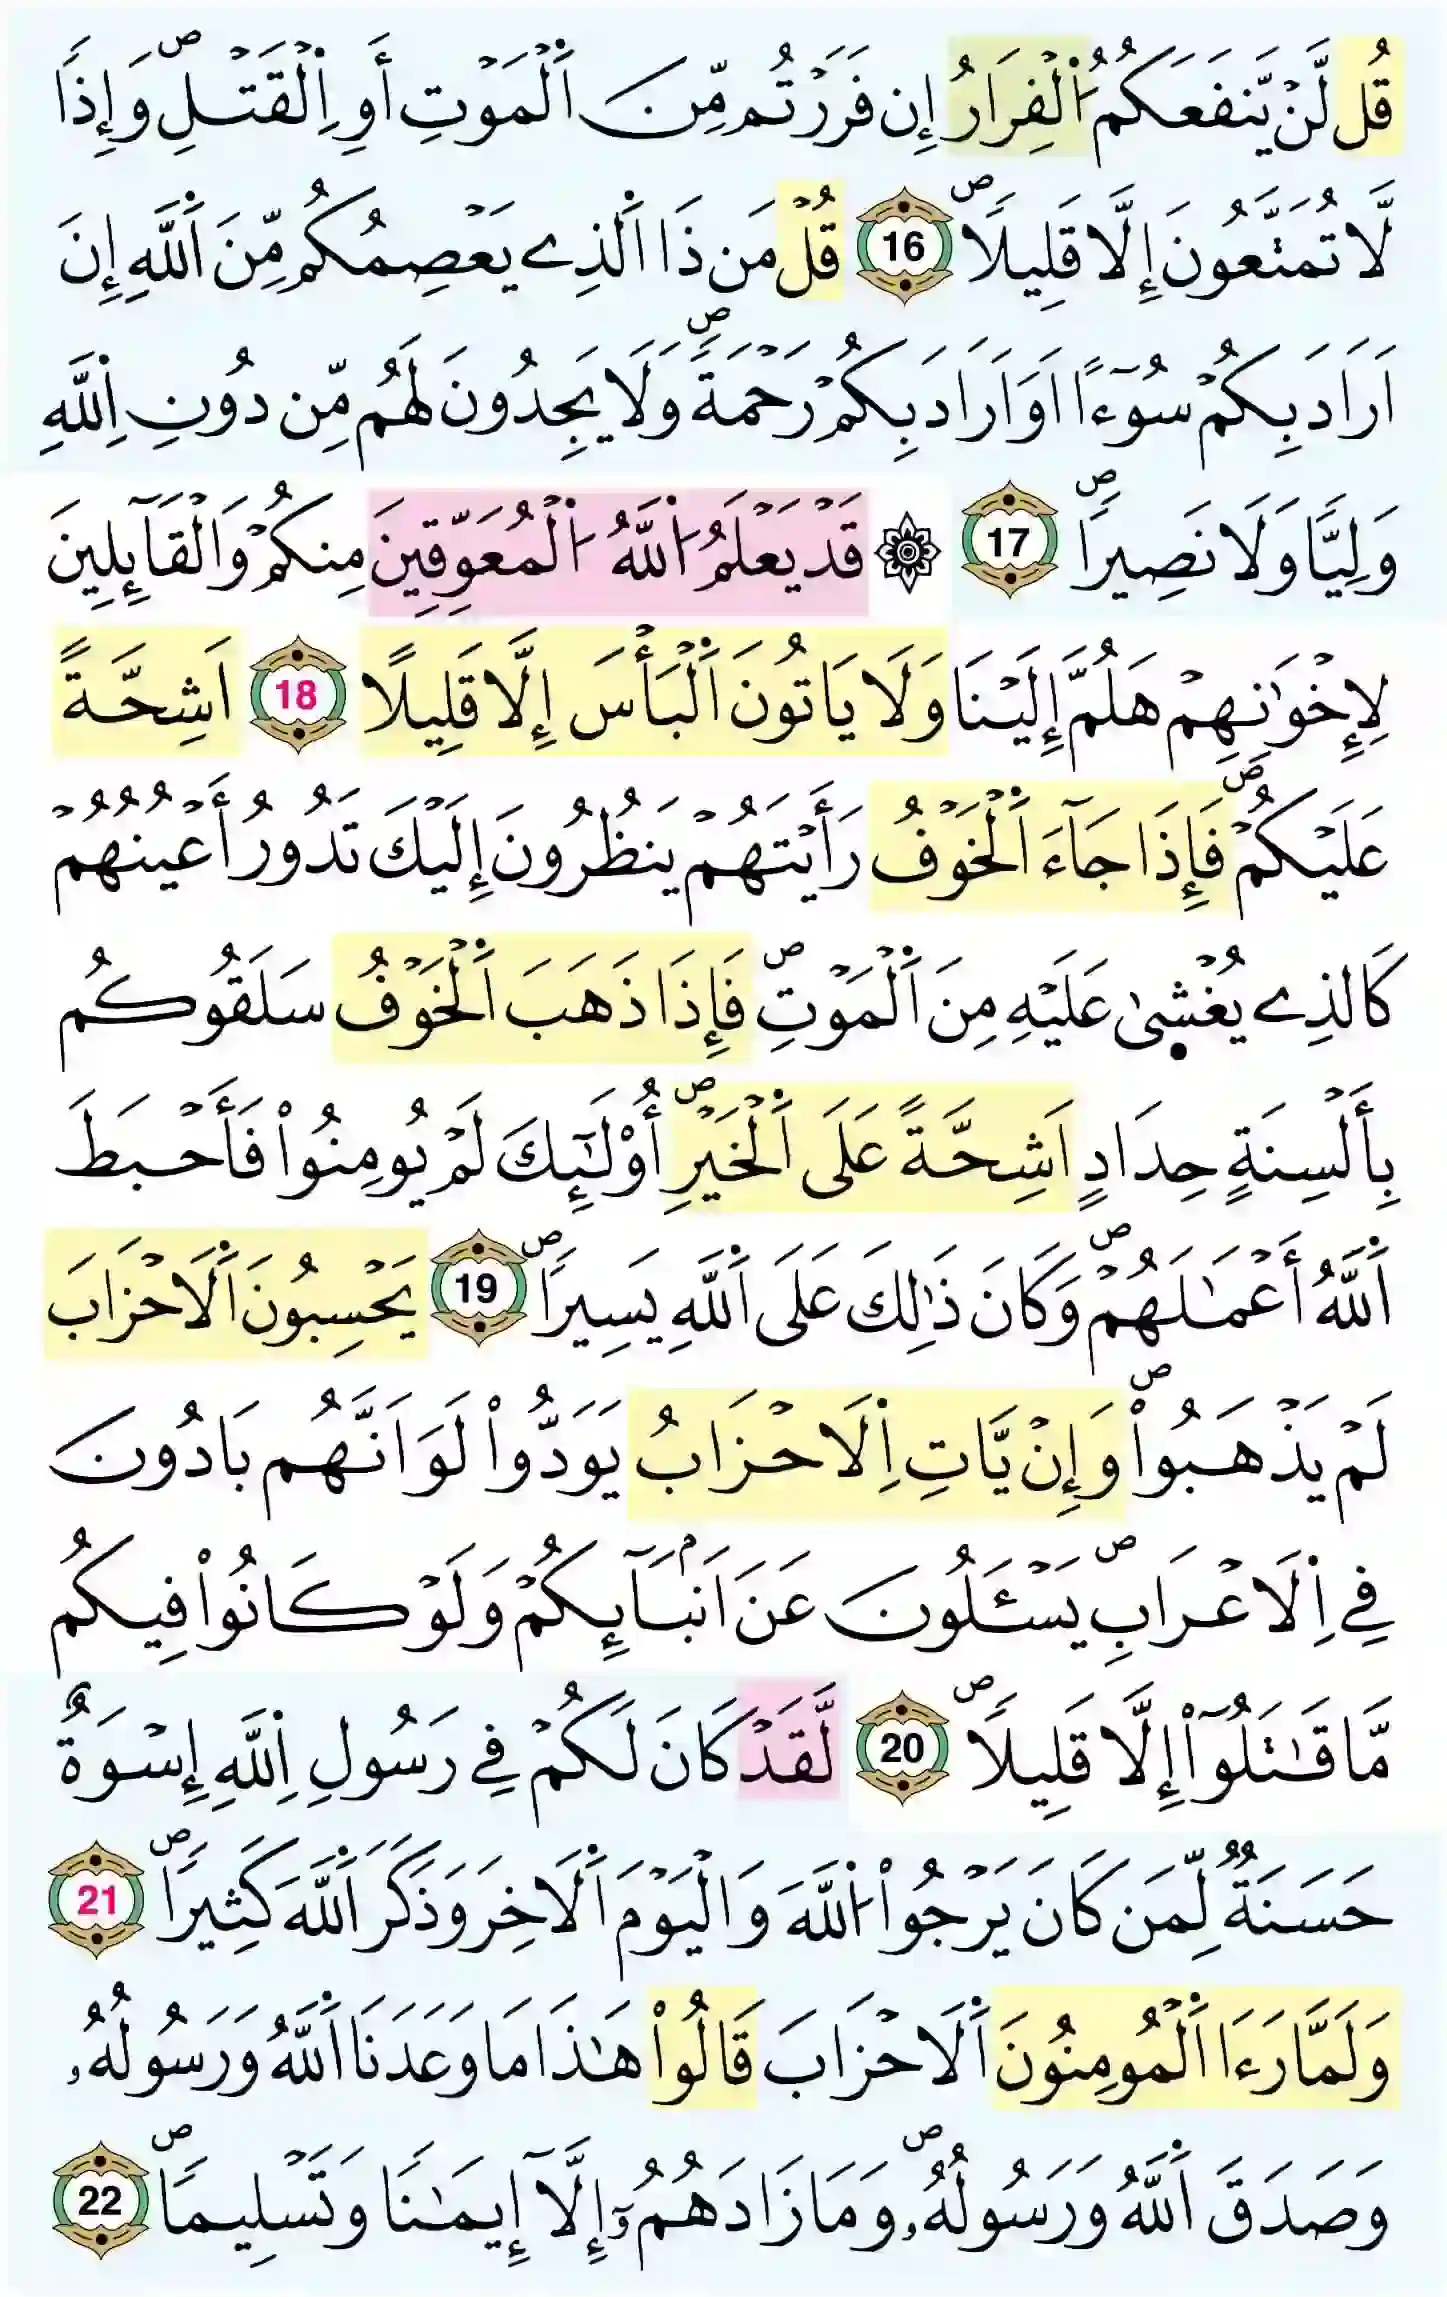 قُل لَّنْ يَّنفَعَكُمُ اُ۬لْفِرَارُ إِن فَرَرْتُم مِّنَ اَ۬لْمَوْتِ أَوِ اِ۬لْقَتْلِۖ وَإِذاٗ
لَّا تُمَتَّعُونَ إِلَّا قَلِيلاٗۖ 16 قُلْ مَن ذَا اَ۬لذِے يَعْصِمُكُم مِّنَ اَ۬للَّهِ إِنَ
اَرَادَ بِكُمْ سُوٓءاً اَوَ اَرَادَ بِكُمْ رَحْمَةٗۖ وَلَا يَجِدُونَ لَهُم مِّن دُونِ اِ۬للَّهِ
وَلِيّاٗ وَلَا نَصِيراٗۖ 17 ۞ قَدْ يَعْلَمُ اُ۬للَّهُ اُ۬لْمُعَوِّقِينَ مِنكُمْ وَالْقَآئِلِينَ
لِإِخْوَٰنِهِمْ هَلُمَّ إِلَيْنَا وَلَا يَاتُونَ اَ۬لْبَأْسَ إِلَّا قَلِيلًا 18 اَشِحَّةً
عَلَيْكُمْۖ فَإِذَا جَآءَ اَ۬لْخَوْفُ رَأَيْتَهُمْ يَنظُرُونَ إِلَيْكَ تَدُورُ أَعْيُنُهُمْ
كَالذِے يُغْشَىٰ عَلَيْهِ مِنَ اَ۬لْمَوْتِۖ فَإِذَا ذَهَبَ اَ۬لْخَوْفُ سَلَقُوكُم
بِأَلْسِنَةٍ حِدَادٍ اَشِحَّةً عَلَى اَ۬لْخَيْرِۖ أُوْلَٰٓئِكَ لَمْ يُومِنُواْ فَأَحْبَطَ
اَ۬للَّهُ أَعْمَٰلَهُمْۖ وَكَانَ ذَٰلِكَ عَلَى اَ۬للَّهِ يَسِيراٗۖ 19 يَحْسِبُونَ اَ۬لَاحْزَابَ
لَمْ يَذْهَبُواْۖ وَإِنْ يَّاتِ اِ۬لَاحْزَابُ يَوَدُّواْ لَوَ اَنَّهُم بَادُونَ
فِے اِ۬لَاعْرَابِۖ يَسْـَٔلُونَ عَنَ اَنۢبَآئِكُمْ وَلَوْ كَانُواْ فِيكُم
مَّا قَٰتَلُوٓاْ إِلَّا قَلِيلاٗۖ 20 لَّقَدْ كَانَ لَكُمْ فِے رَسُولِ اِ۬للَّهِ إِسْوَةٌ
حَسَنَةٞ لِّمَن كَانَ يَرْجُواْ اُ۬للَّهَ وَالْيَوْمَ اَ۬لَاخِرَ وَذَكَرَ اَ۬للَّهَ كَثِيراٗۖ 21
وَلَمَّا رَءَا اَ۬لْمُومِنُونَ اَ۬لَاحْزَابَ قَالُواْ هَٰذَا مَا وَعَدَنَا اَ۬للَّهُ وَرَسُولُهُۥ
وَصَدَقَ اَ۬للَّهُ وَرَسُولُهُۥۖ وَمَا زَادَهُمُۥٓ إِلَّآ إِيمَٰناٗ وَتَسْلِيماٗۖ 22